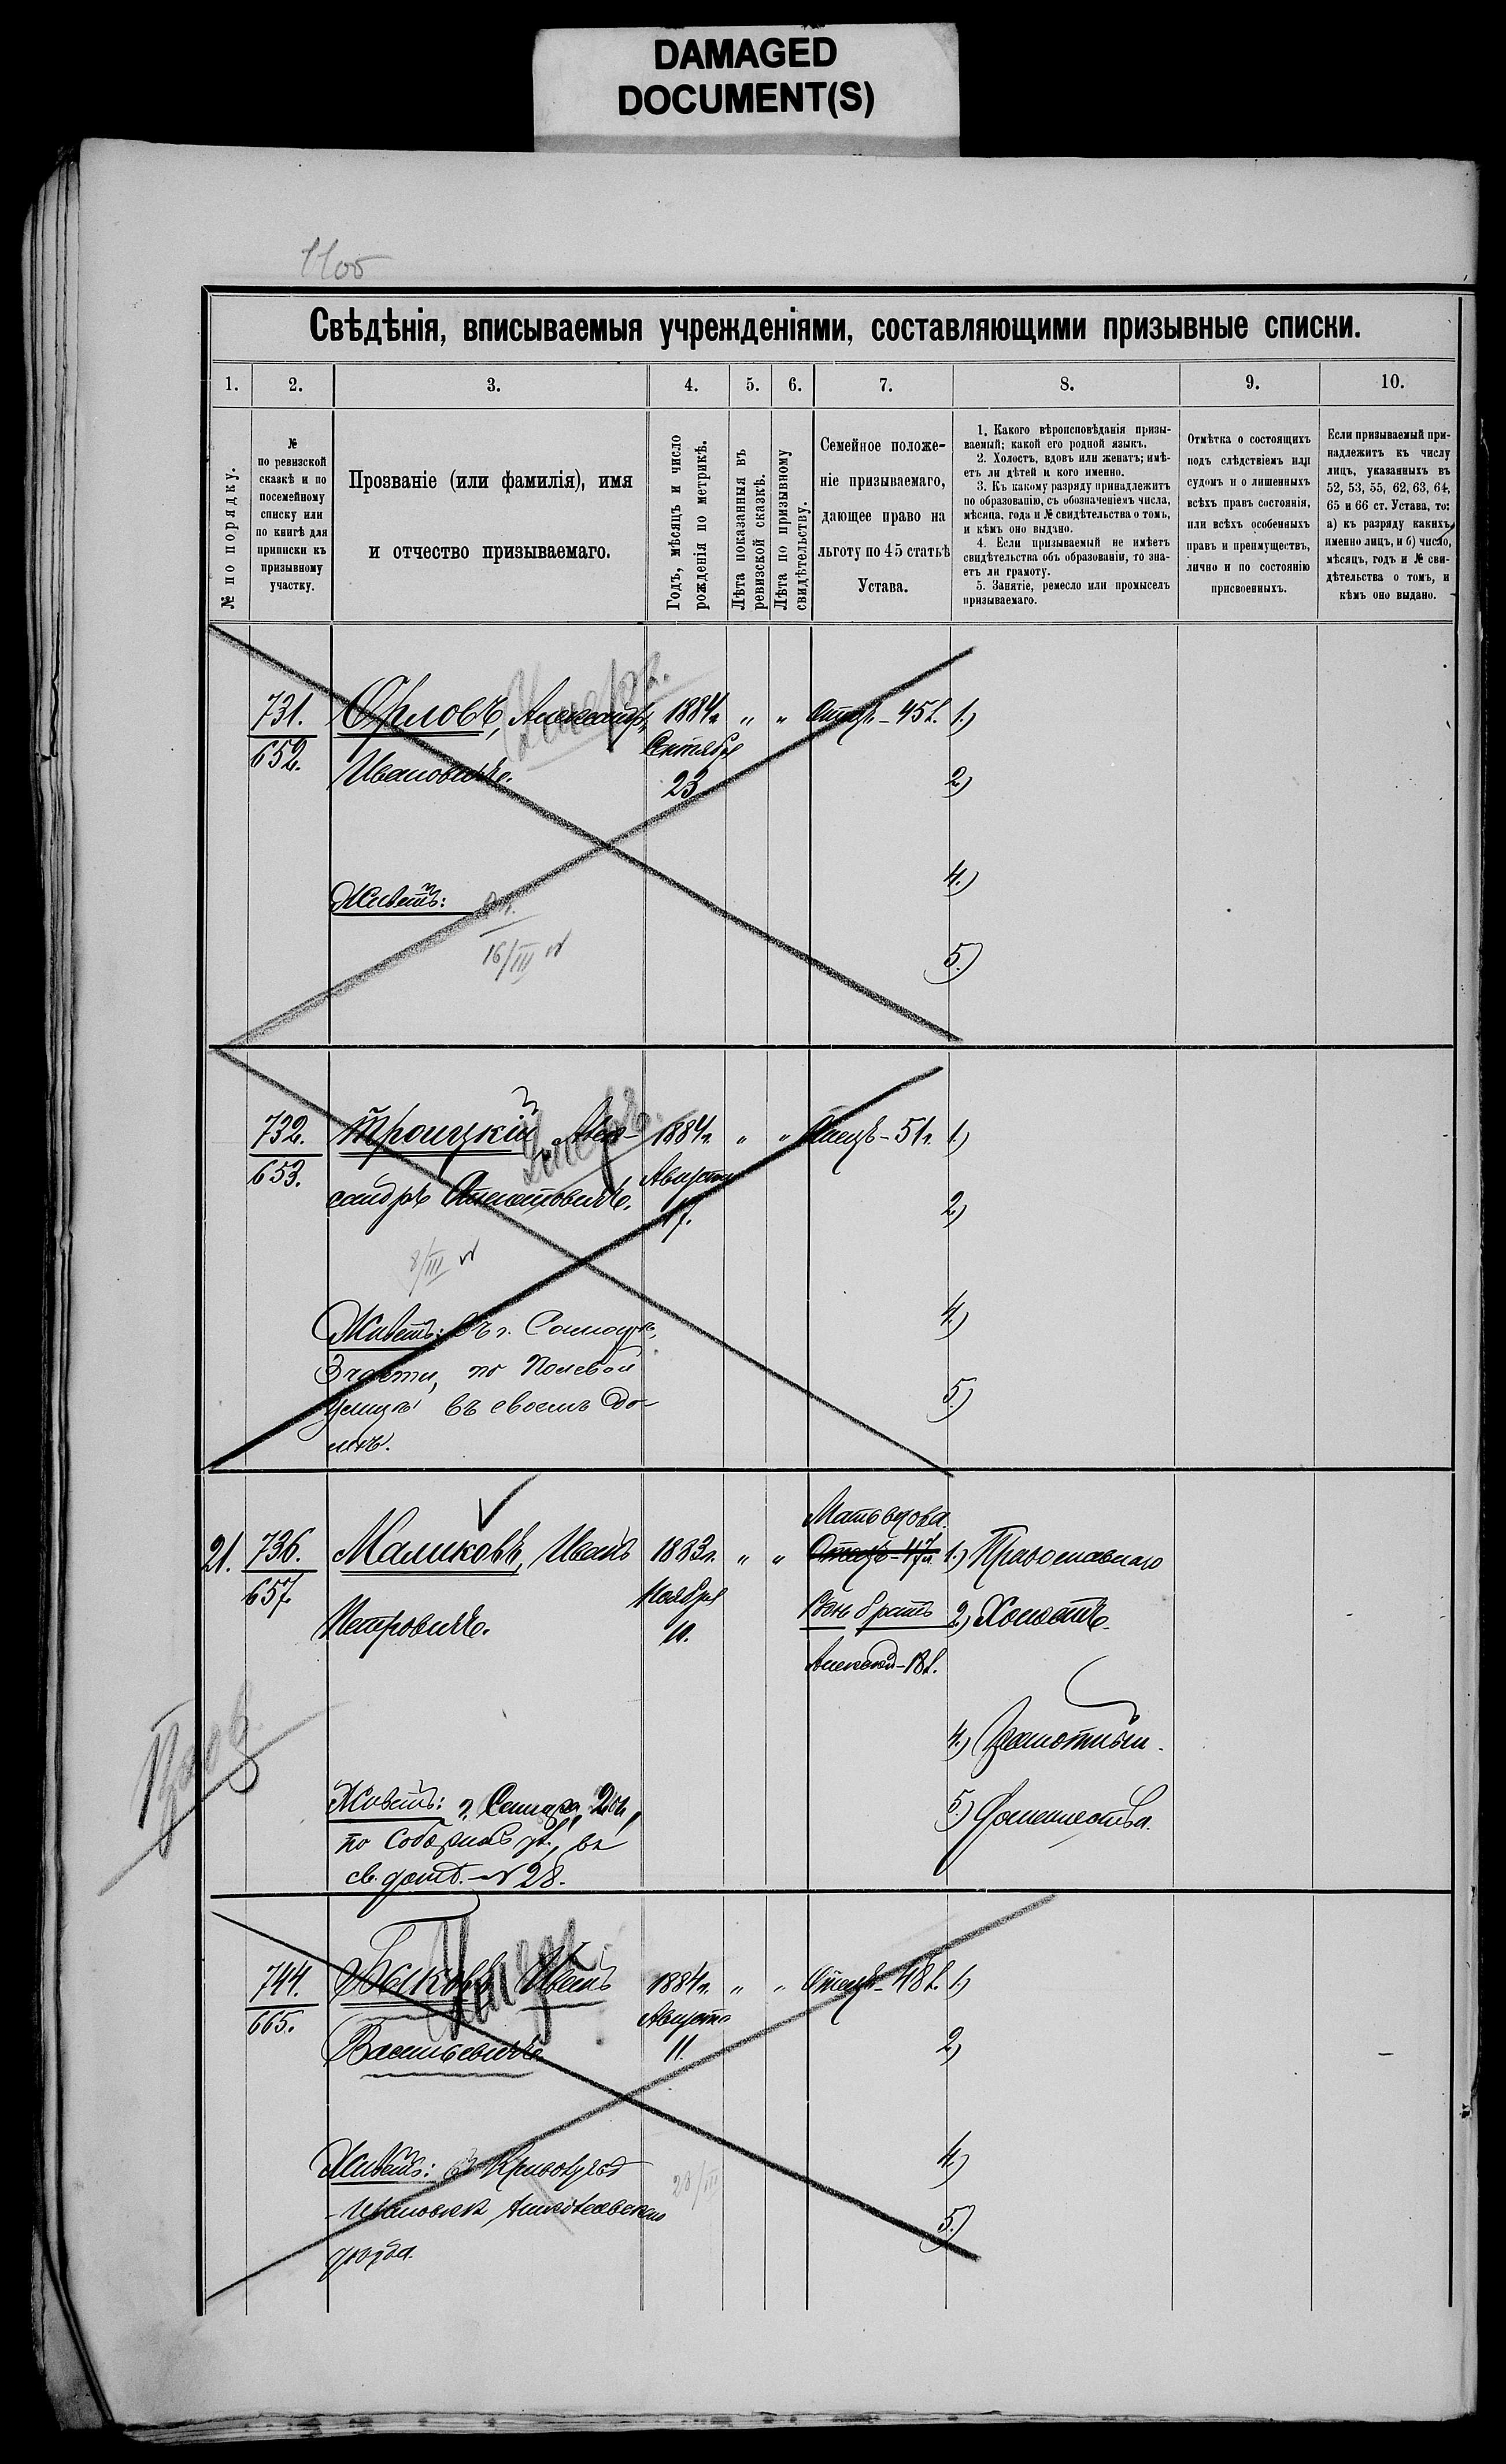 DAMAGED
DOCUMENT(S)
1100
Свѣдѣнія, вписываемыя учрежденіями, составляющими призывные списки.
1. 2. 3. 4. 5. 6. 7. 8. 9. 10.
№ по порядку.
№
по ревизской
сказкѣ и по
посемейному
списку или
по книгѣ для
приписки къ
призывному
участку.
Прозваніе (или фамилія), имя
и отчество призываемаго.
Годъ, мѣсяцъ и число
рожденія по метрикѣ.
Лѣта показанныя въ
ревизской сказкѣ.
Лѣта по призывному
свидѣтельству.
Семейное положе-
ніе призываемаго,
дающее право на
льготу по 45 статьѣ
Устава.
1. Какого вѣроисповѣданія призы-
ваемый; какой его родной языкъ.
2. Холостъ, вдовъ или женатъ; имѣ-
етъ ли дѣтей и кого именно.
3. Къ какому разряду принадлежитъ
по образованію, съ обозначеніемъ числа,
мѣсяца, года и № свидѣтельства о томъ,
и кѣмъ оно выдано.
4. Если призываемый не имѣетъ
свидѣтельства объ образованіи, то зна-
етъ ли грамоту.
5. Занятіе, ремесло или промыселъ
призываемаго.
Отмѣтка о состоящихъ
подъ слѣдствіемъ или
судомъ и о лишенныхъ
всѣхъ правъ состоянія,
или всѣхъ особенныхъ
правъ и преимуществъ,
лично и по состоянію
присвоенныхъ.
Если призываемый при-
надлежитъ къ числу
лицъ, указанныхъ въ
52, 53, 55, 62, 63, 64,
65 и 66 ст. Устава, то:
а) къ разряду какихъ
именно лицъ, и б) число,
мѣсяцъ, годъ и № сви-
дѣтельства о томъ, и
кѣмъ оно выдано.
Умеръ.
731. Орловъ, Александръ 1884г. " " Отецъ - 45 л. 1.)
652. Ивановичъ. Сентября
23 2.)
4.)
Живетъ:
16/III
5.)
Умеръ.
732. Троицкій, Алек- 1884г. " " Отецъ - 51г. 1.)
653. сандръ Августа
17. 2.)
8/III
Живетъ: въ г. Самарѣ, 4.)
3 части, по Полевой
улицѣ въ своемъ до- 5.)
мѣ.
Мать вдова.
21. 736. Маликовъ, Иванъ 1883г. " " Отецъ - 47л. 1.) Православнаго
657. Ноября Родн. братъ 2.) Холостъ.
Петровичъ. 10.
Алексѣй - 18 л.
4.) Грамотный.
Живетъ: г. Самара 2ой, 5.)
по Соборной ул., въ
св. домѣ. № 28.
Умеръ.
744. Быковъ Иванъ 1884г. " " Отецъ - 48 л. 1.)
665. Августа
Васильевичъ. 11. 2.)
4.)
Живетъ: въ
28/III
Николаевскаго 5.)
уѣзда.